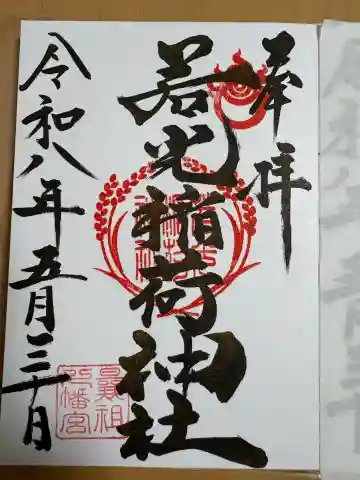 奉拝
若光稲荷神社
令和八年五月三十日